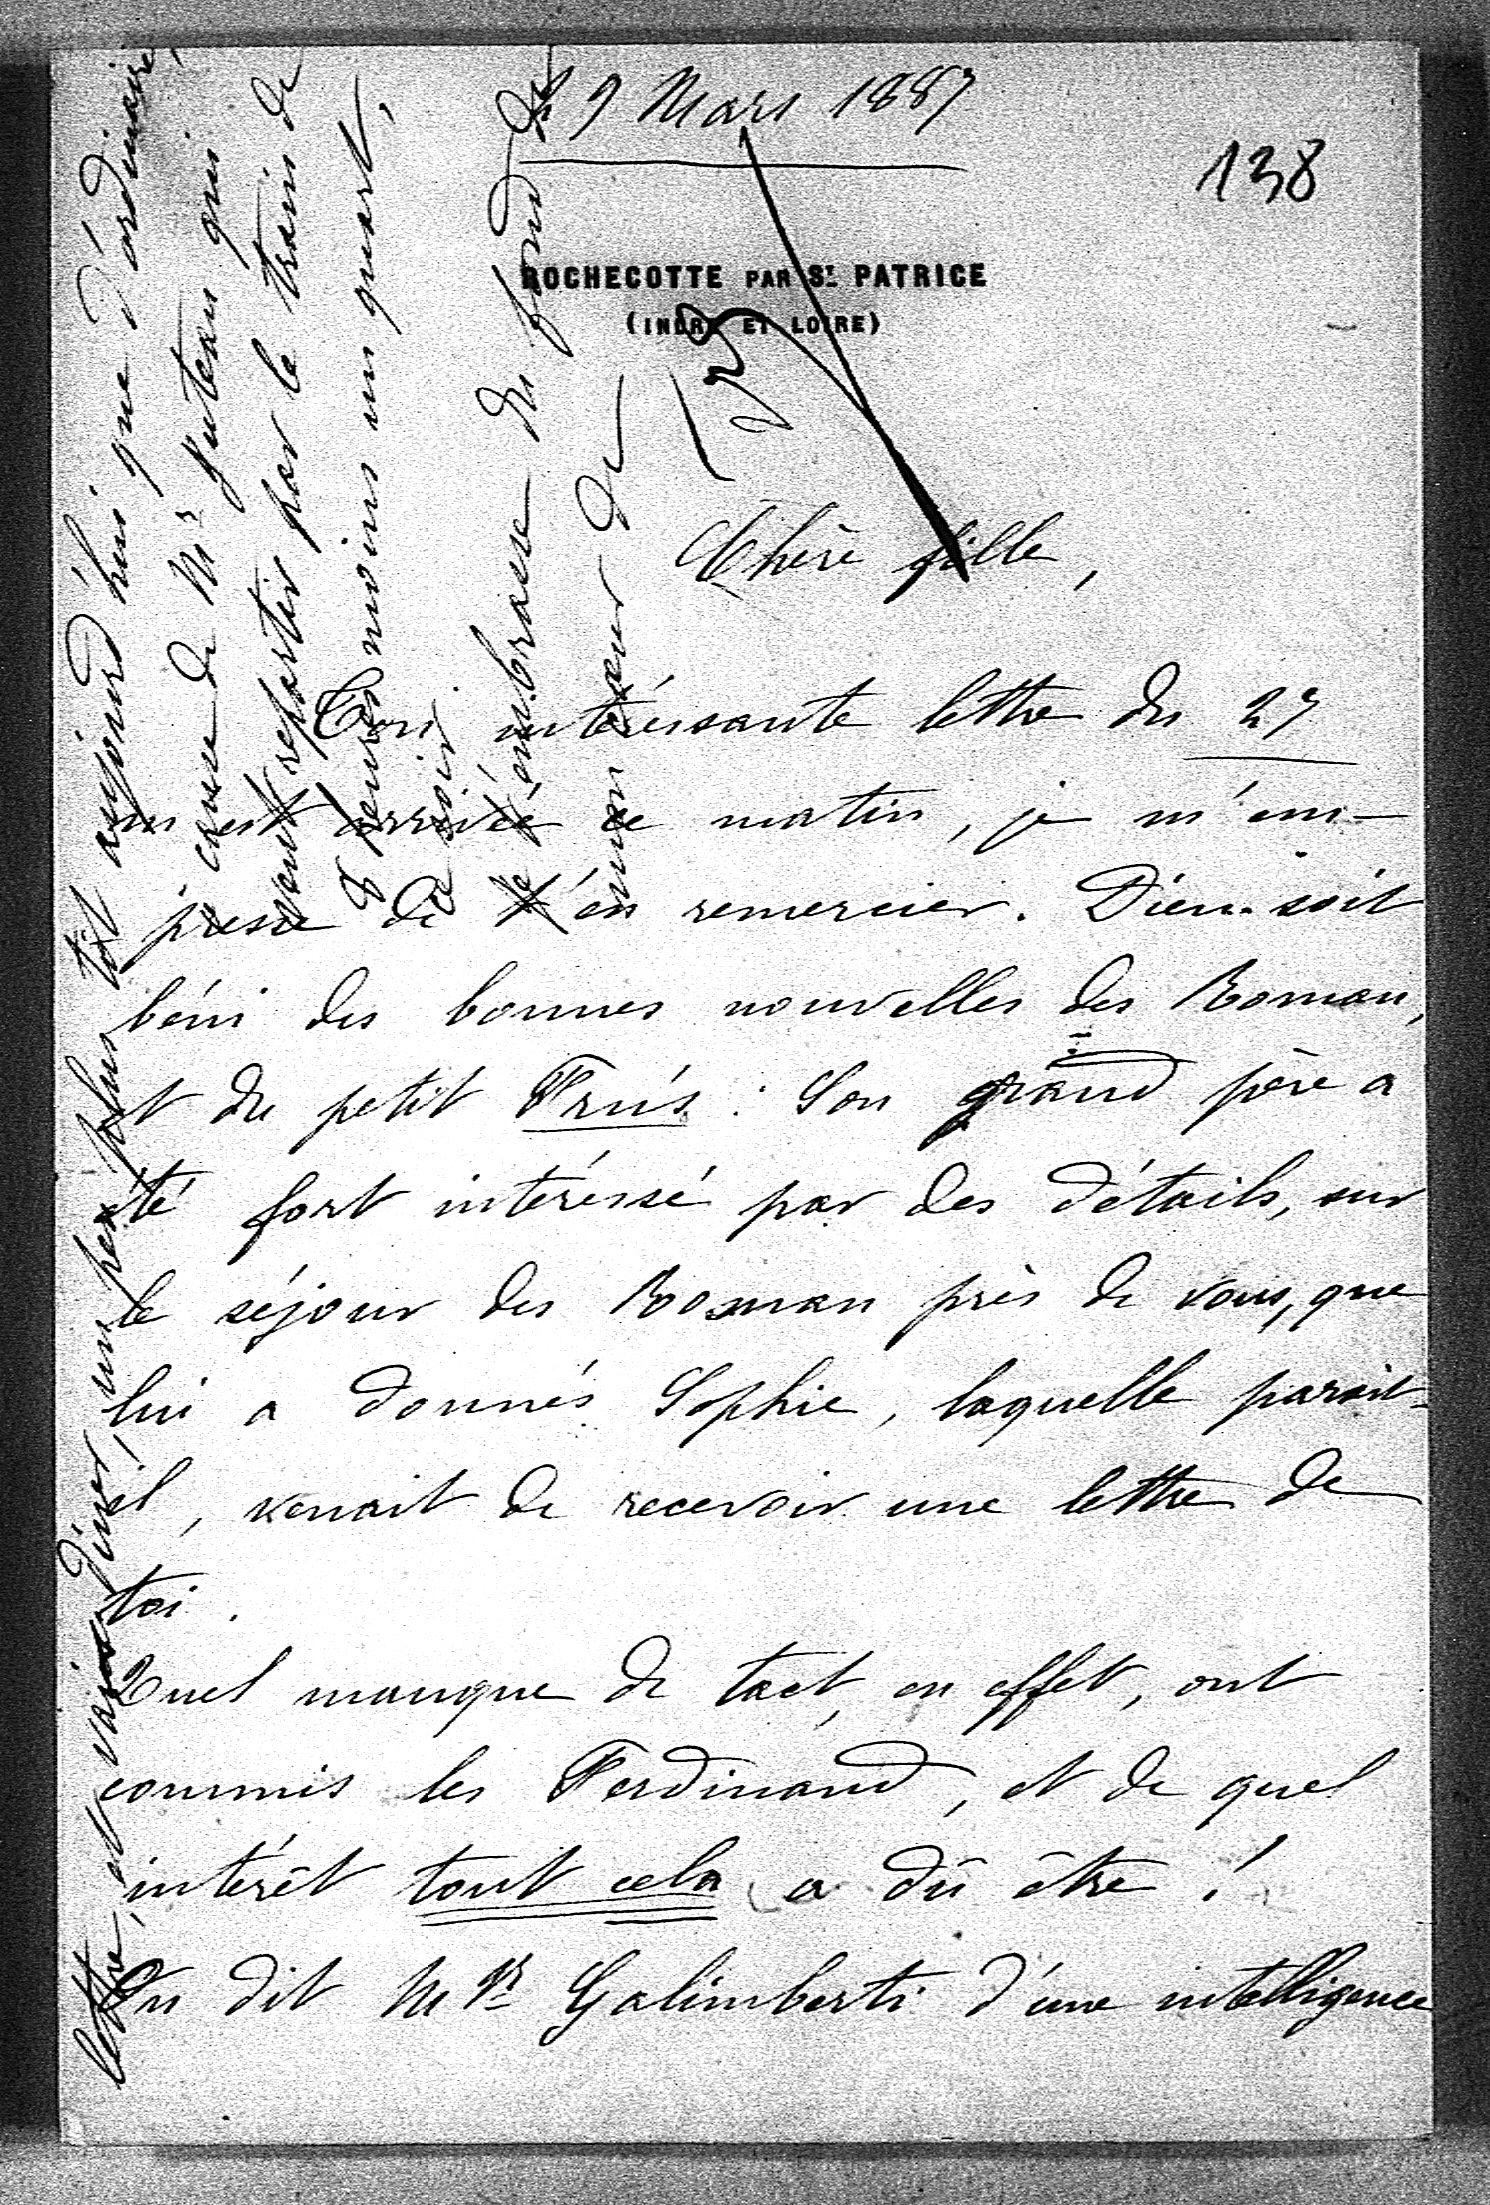 29 Mars 1887
138
ROCHECOTTE PAR ST PATRICE
(INDRE ET LOIRE)
Chère fille,
Ton intéressante lettre du 27
m'est arrivée ce matin, je m'em-
presse de t'en remercier. Dieu soit
béni des bonnes nouvelles des Roman,
et du petit Frus : Son grand père a
été fort intéressé par des détails, sur
le séjour des Roman près de vous, que
lui a donnés Sophie, laquelle parait-
il, venait de recevoir une lettre de
toi.
Quel manque de tact, en effet, ont
commis les Ferdinand, et de quel
intérêt tout cela a dû être !
On dit Mgr Galimberti d'une intelligence
lettre, et vais dîner, un peu plus tôt aujourd'hui que d'ordinaire,
à cause de Mr Juteau qui
veut repartir par le train de
8 heures moins un quart,
ce soir
Je t'embrasse du fond de
mon cœur de